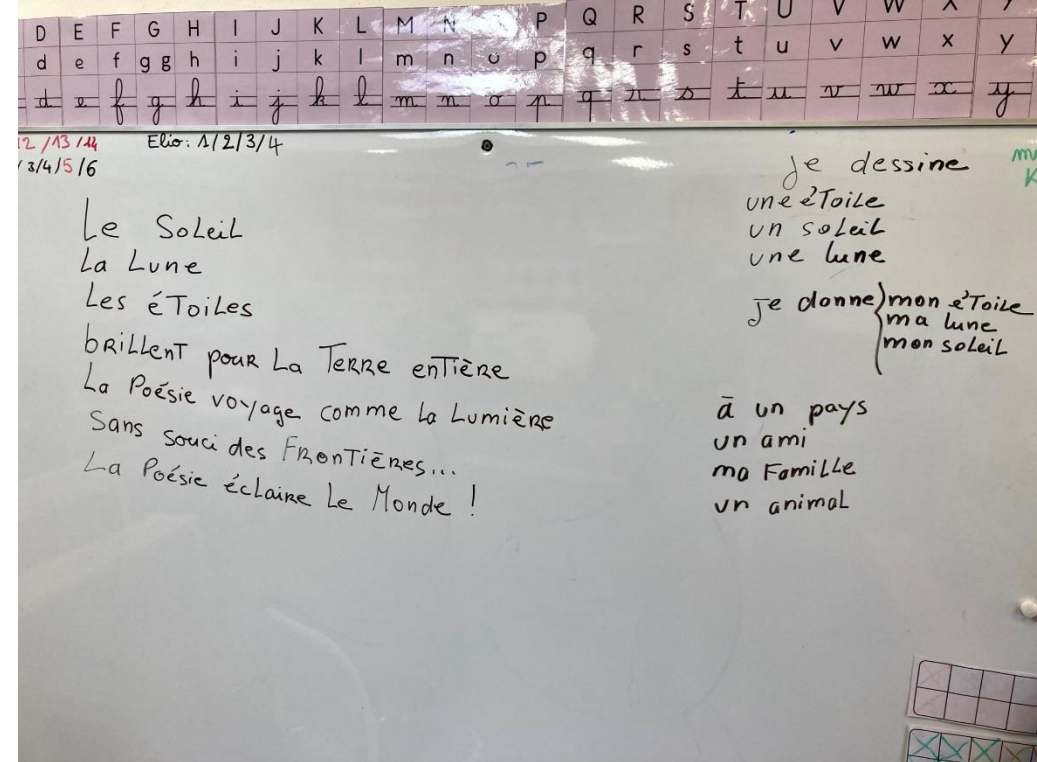 D E F G H I J K L M N O P Q R S T U V W X Y
d e f g g h i j k l m n o p q r s t u v w x y
d e f g h i j k l m n o p q r s t u v w x y
12/13/14 Elio: 1/2/3/4
/3/4/5/6
Le Soleil
La Lune
Les étoiles
brillent pour La Terre entière
La Poésie voyage comme la Lumière
Sans souci des Frontières...
La Poésie éclaire Le Monde !
je dessine
une étoile
un soleil
une lune
Je donne mon étoile
ma lune
mon soleil
à un pays
un ami
ma Famille
un animal